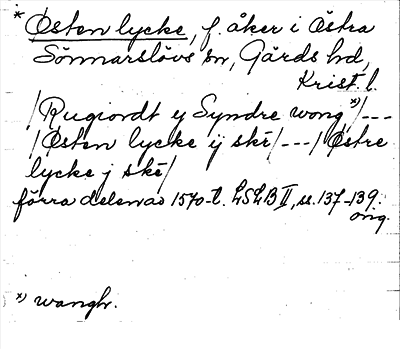 * Östen lycke, f. åker i Östra
Sönnarslövs sn, Gärds hd,
Krist. l.
/Rugiordt y Syndre wong *)/---
/Östen lycke ij ske/---/Östre
lycke j ske/
förra delen av 1570-t. LSLB II, ss. 137-139.
orig.
*) wangh.